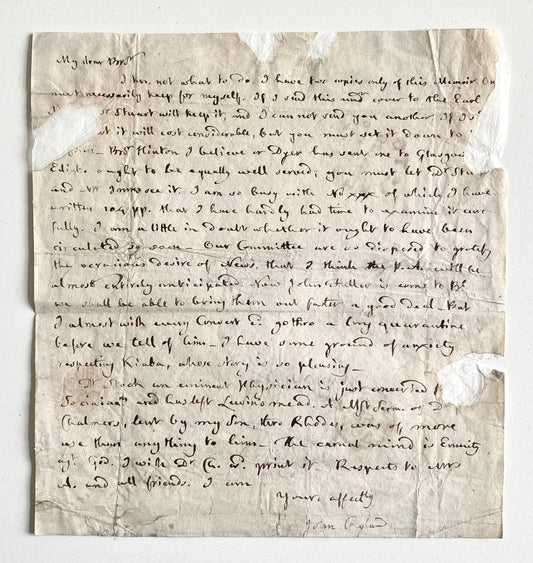 My dear Bror
I kno. not what to do. I have two copies only of this Memoir. One
must necessarily keep for myself. If I send this undr cover to the Earl
or Stuart will keep it, and I can not send you another. If I
it will cost considerable, but you must set it down to
Bror Hinton I believe or Dyer has sent one to Glasgow
Edinr ought to be equally well served; you must let Dr Stuart
and Mr Innes see it. I am so busy with No xxx of which I have
written 104 pp. that I have hardly had time to examine it care
fully. I am a little in doubt whether it ought to have been
circulated so soon – Our Committee are so disposed to gratify
the voracious desire of News, that I think the P. Acc. will be
almost entirely anticipated. Now John Fuller is come to Bl
we shall be able to bring them out faster a good deal – But
I almost wish every Convert cd go thro a long quarantine
before we tell of him – I have some ground of anxiety
respecting Kiaba, whose story is so pleasing –
Dr Stock an eminent Physician is just converted
Socinianm and has left Lewins mead. A MSt Serm. of Dr
Chalmers, lent by my Son, thro Rhodes, was of more
use than anything to him – The carnal mind is Enmity
agt God. I wish Dr C. wd print it. Respects to Mrs
A. and all friends. I am
Yours affectly
John Ryland